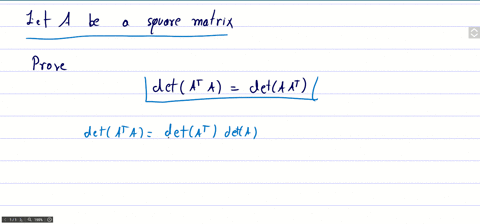 Let A be a square matrix
Prove
det(Aᵀ A) = det(A Aᵀ)
det(Aᵀ A) = det(Aᵀ) det(A)